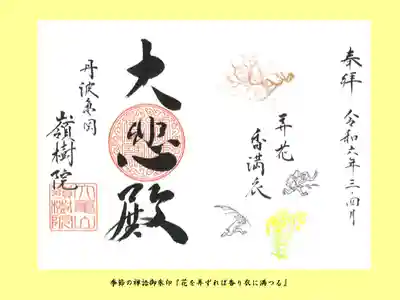 奉拝
令和六年三・四月
弄花
香満衣
大悲殿
丹波魚岡
嶺樹院
季節の禅語御朱印『花を弄ずれば香り衣に満つる』